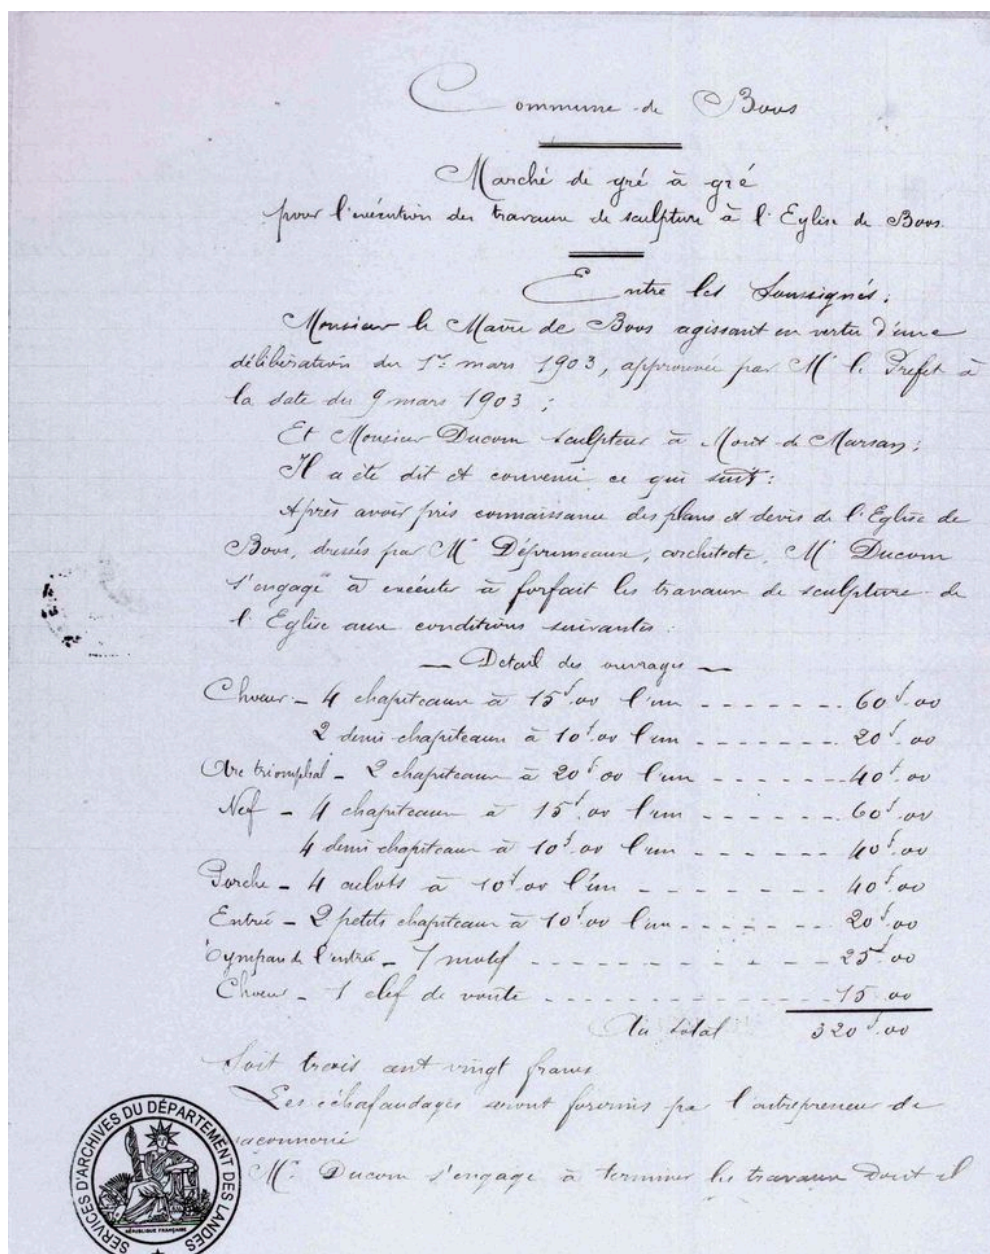 Commune de Boos
Marché de gré à gré
pour l'exécution des travaux de sculpture à l'Eglise de Boos.
Entre les Soussignés :
Monsieur le Maire de Boos agissant en vertu d'une
délibération du 1er mars 1903, approuvée par M. le Préfet à
la date du 9 mars 1903 ;
Et Monsieur Ducom sculpteur à Mont-de-Marsan ;
Il a été dit et convenu ce qui suit :
Après avoir pris connaissance des plans et devis de l'Eglise de
Boos, dressés par Mr Dépruneaux, architecte, Mr Ducom
s'engage à exécuter à forfait les travaux de sculpture de
l'Eglise aux conditions suivantes :
— Détail des ouvrages —
Choeur - 4 chapiteaux à 15f.00 l'un - - - - - - - 60f.00
2 demi-chapiteaux à 10f.00 l'un - - - - - - - 20f.00
Arc triomphal - 2 chapiteaux à 20f.00 l'un - - - - - - - 40f.00
Nef - 4 chapiteaux à 15f.00 l'un - - - - - - - 60f.00
4 demi chapiteaux à 10f.00 l'un - - - - - - - 40f.00
Porche - 4 culots à 10f.00 l'un - - - - - - - 40f.00
Entrée - 2 petits chapiteaux à 10f.00 l'un - - - - - - - 20f.00
Tympan de l'entrée - 1 motif - - - - - - - 25f.00
Choeur - 1 clef de voute - - - - - - - 15.00
Au total 320f.00
Soit trois cent vingt francs
Les échafaudages seront fournis par l'entrepreneur de
maçonnerie
Mr Ducom s'engage à terminer les travaux dont il
SERVICES D'ARCHIVES DU DÉPARTEMENT DES LANDES
RÉPUBLIQUE FRANÇAISE